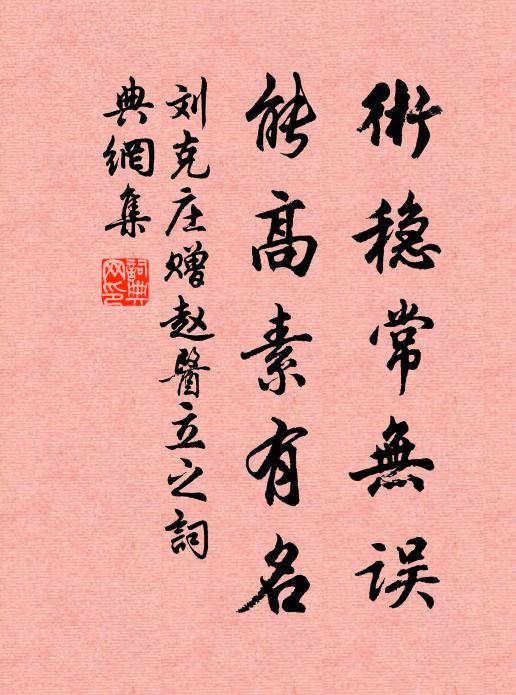 術穩常無误
能高素有名
刘克庄赠赵醫立之詞
典網集
詞典
网印